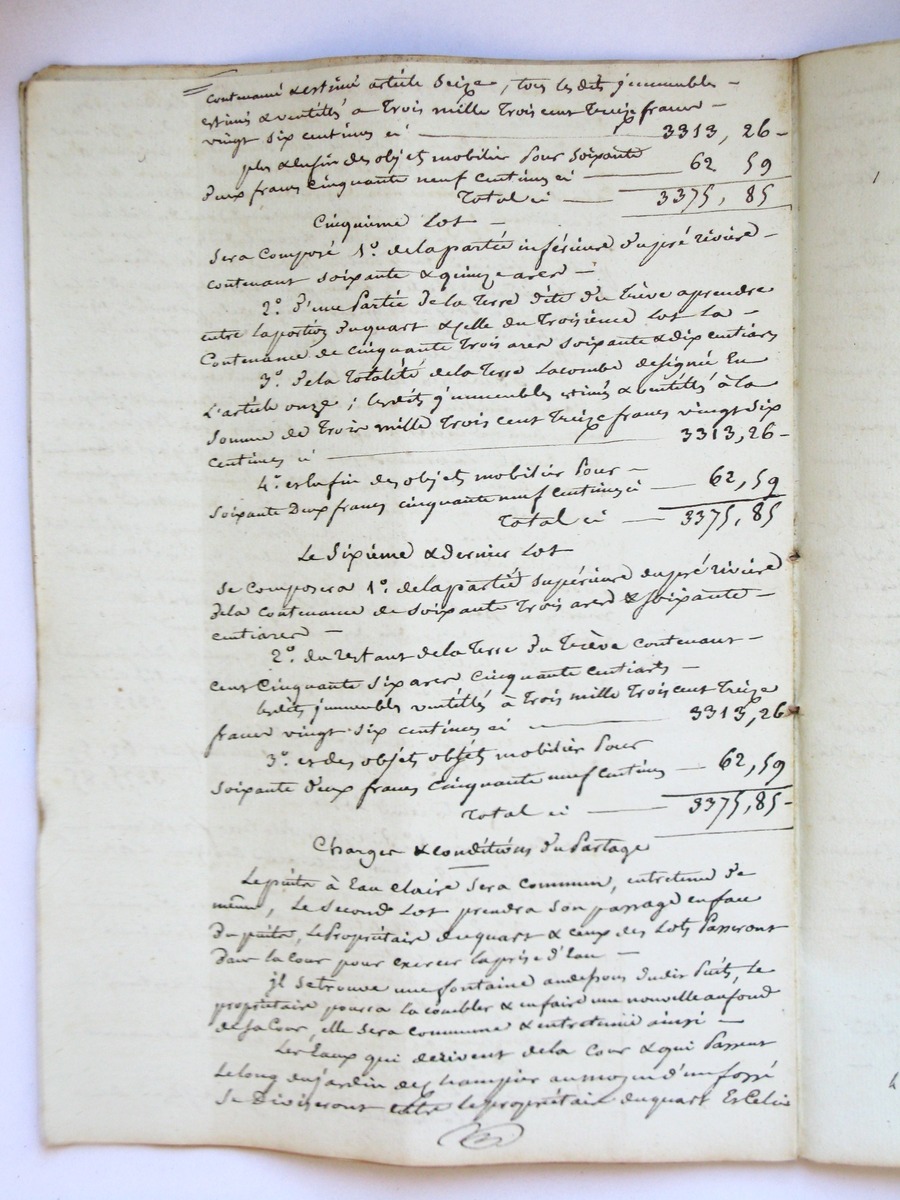 contenance & estimé article Seize, tous lesdits jmmeubles -
estimés & ventillés a Trois mille Trois cent treize francs -
vingt six centimes ci — 3313, 26 -
plus & enfin des objets mobilier pour soixante
deux francs cinquante neuf centimes ci — 62 59
Total ci — 3375, 85
Cinquieme Lot -
sera Composé 1º. de la partie inférieure du pré rivière -
contenant soixante & quinze ares -
2º. d'une Partie de la Terre dite du Trève a prendre
entre la portion du quart & celle du Troisième Lot La -
Contenance de cinquante Trois ares soixante & dix centiares
3º. de la Totalité de la Terre Lacombe designée En
L'article onze ; lesdits jmmeubles estimés & ventillés à la
somme de Trois mille Trois cent treize francs vingt six
centimes ci — 3313, 26 -
4º. et enfin des objets mobilier Pour -
soixante Deux francs cinquante neuf Centimes ci — 62, 59
Total ci — 3375, 85
Le Sixième & dernier Lot
se composera 1º. de la partie supérieure du pré rivière
de la contenance de soixante Trois ares & soixante -
centiares -
2º. du restant de la Terre du Trève contenant -
cent cinquante six ares cinquante centiares -
lesdits jmmeubles ventillés à Trois mille Trois cent treize
francs vingt six centimes ci — 3313, 26
3º. et des objets objets mobilier Pour
soixante deux francs cinquante neuf Centimes — 62, 59
Total ci — 3375, 85 -
Charges & conditions du Partage
Le puits à Eau claire sera commun, entretenu de
même, Le Second Lot prendra son passage en face
du puits, Le Propriétaire du quart & ceux des Lots Passeront
Dans la Cour pour exercer la prise d'Eau -
jl se trouve une fontaine au dessous dudit Puits, Le
propriétaire pourra la combler & en faire une nouvelle au fond
de sa Cour, elle sera commune & entretenue ainsi -
Les Eaux qui derivent de la Cour & qui Passent
Le long du jardin de au moyen d'un fossé
se Diviseront entre le propriétaire du quart Et Celui